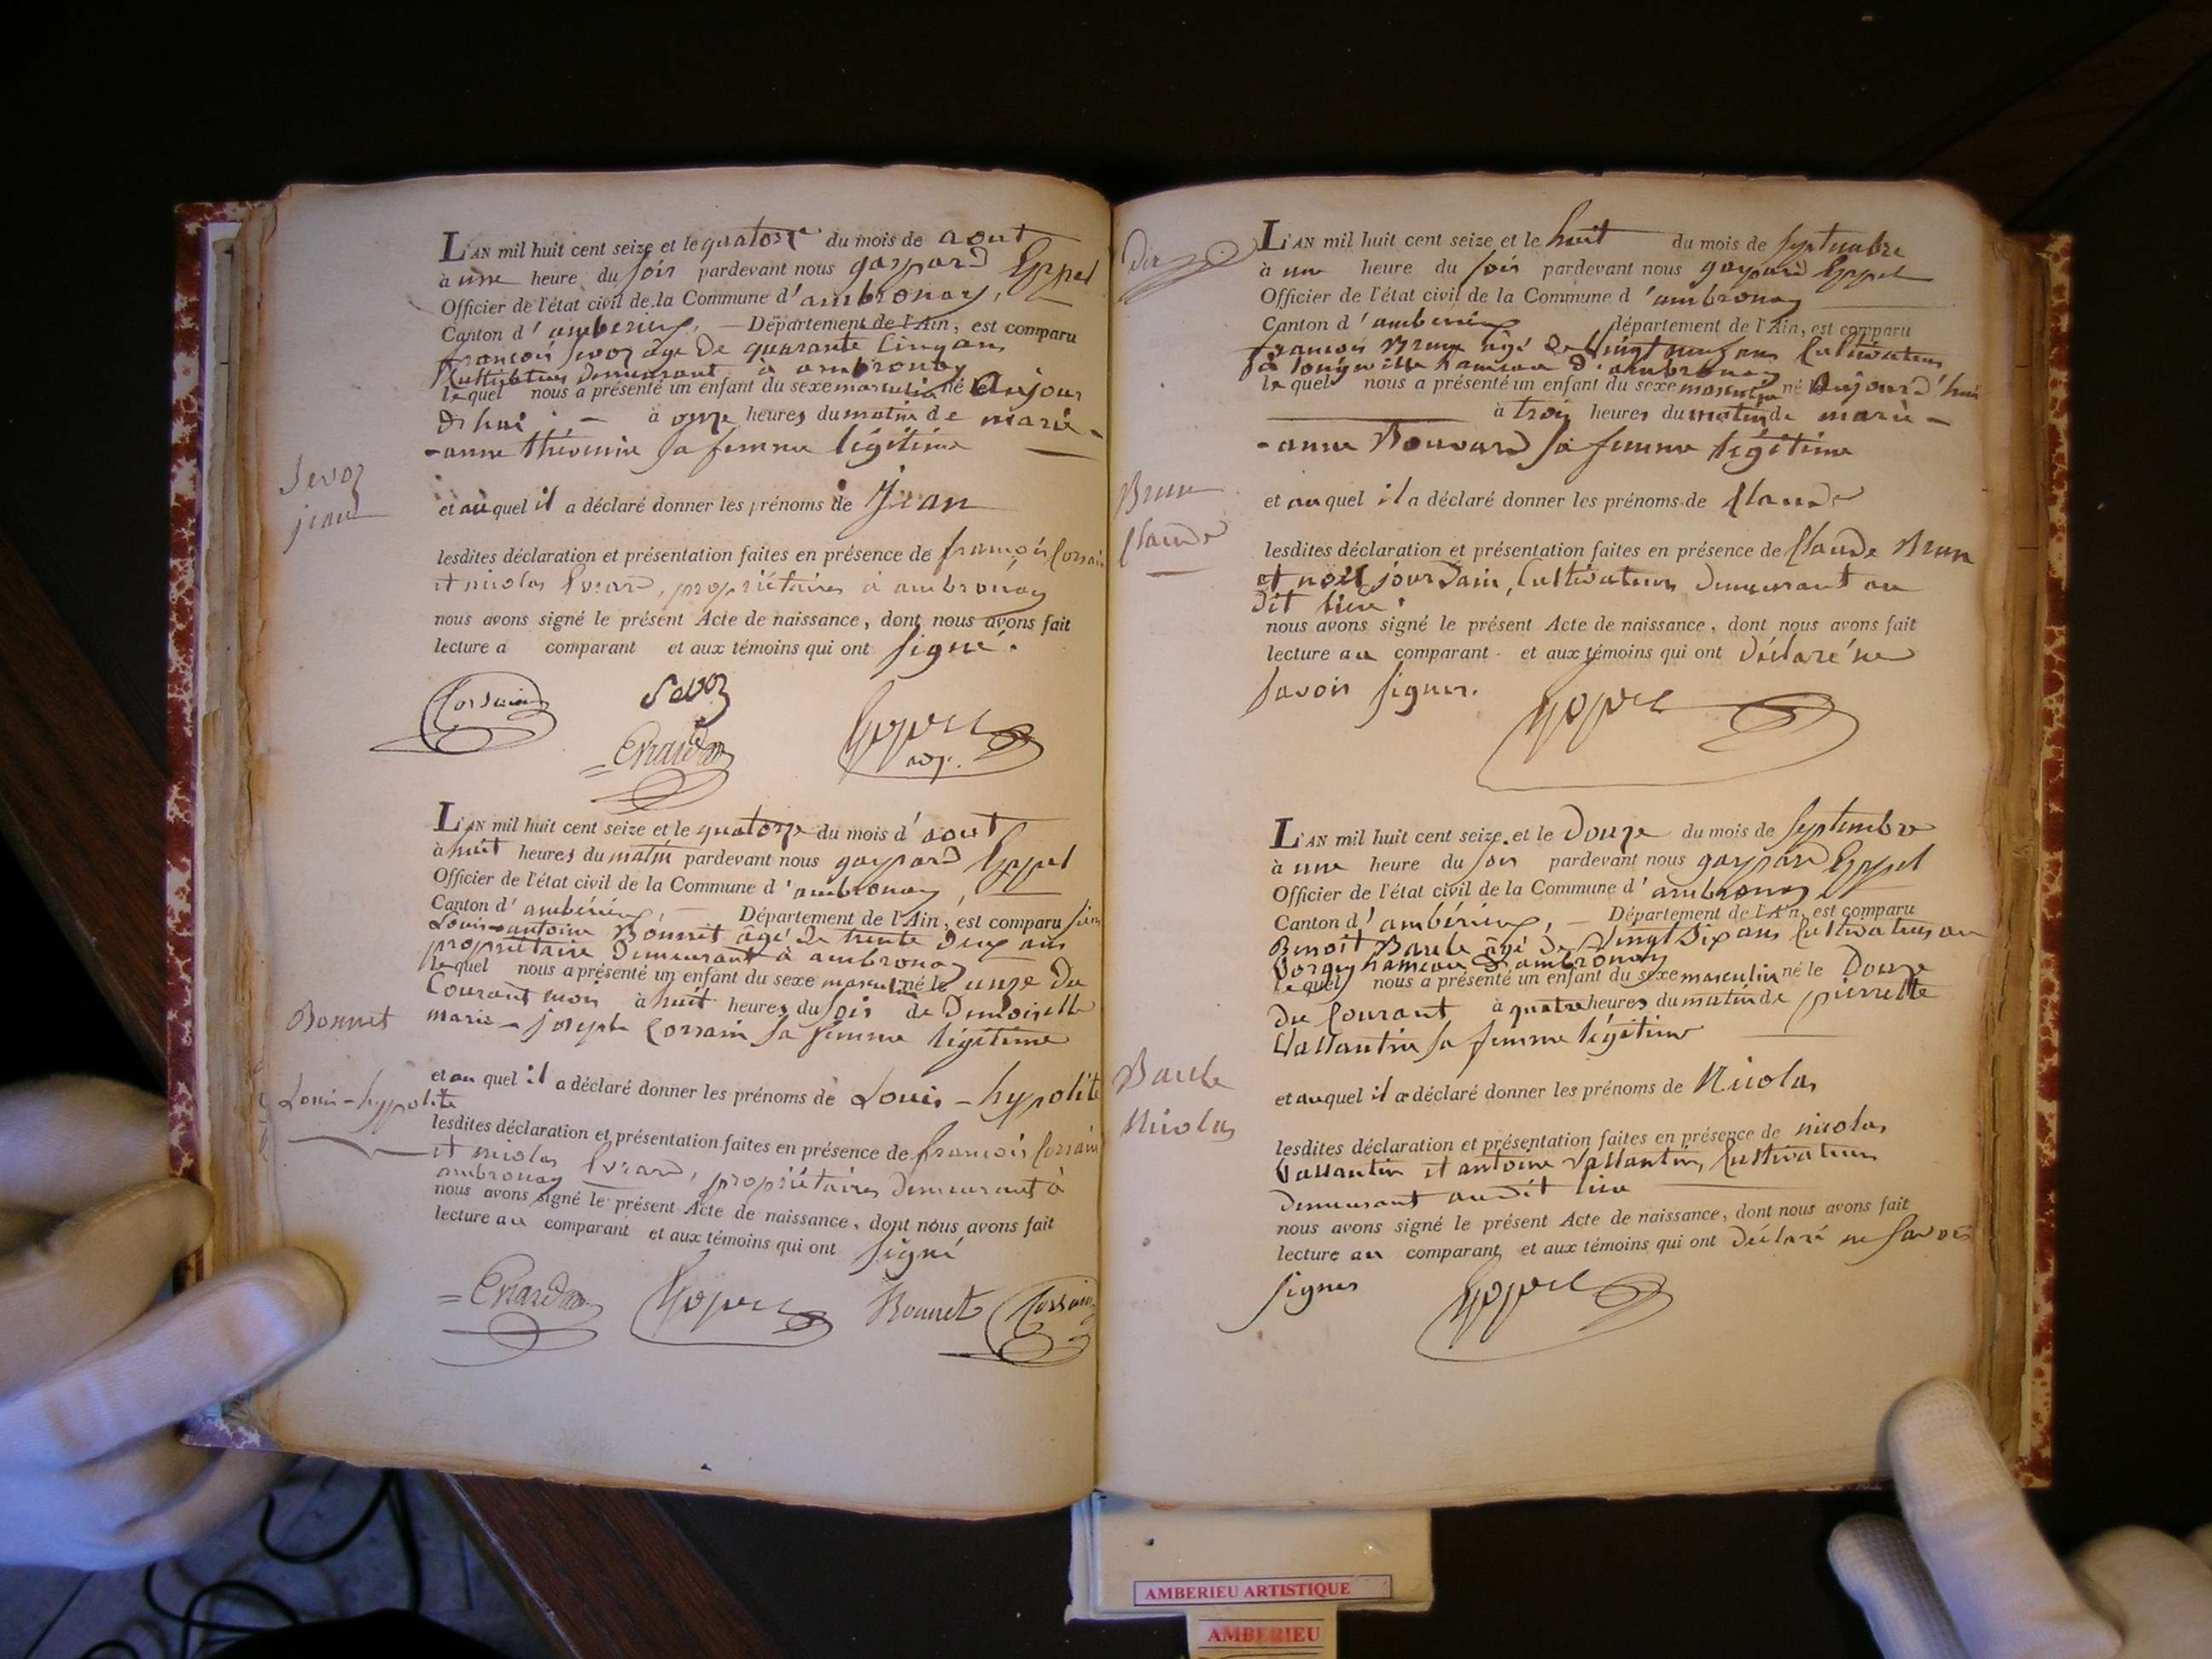 L'AN mil huit cent seize et le quatorze du mois de aout
à une heure du soir pardevant nous gaspard Eppel
Officier de l'état civil de la Commune d'ambronay,
Canton d'amberieux, — Département de l'Ain, est comparu
françois Sevoz âgé de quarante Cinq ans
Cultivateur demeurant à ambronay
lequel nous a présenté un enfant du sexe masculin né aujour
d'hui — à onze heures du matin de marie-
-anne thévenin sa femme légitime
Sevoz
jean
et auquel il a déclaré donner les prénoms de Jean
lesdites déclaration et présentation faites en présence de françois Corsain
et nicolas Evrard, propriétaires à ambronay
nous avons signé le présent Acte de naissance, dont nous avons fait
lecture a comparant et aux témoins qui ont signé.
Corsain Sevoz
Evrard Eppel
L'AN mil huit cent seize et le quatorze du mois d'aout
à huit heures du matin pardevant nous gaspard Eppel
Officier de l'état civil de la Commune d'ambronay,
Canton d'ambérieux, — Département de l'Ain, est comparu
Louis-antoine Bonnet âgé de trente deux ans
propriétaire demeurant à ambronay
lequel nous a présenté un enfant du sexe masculin né le onze du
Courant mois à huit heures du soir de Demoiselle
marie-joseph Corsain sa femme légitime
Bonnet
Louis-hypolite
et au quel il a déclaré donner les prénoms de Louis-hypolite
lesdites déclaration et présentation faites en présence de françois Corsain
et nicolas Evrard, propriétaires demeurant à
ambronay
nous avons signé le présent Acte de naissance, dont nous avons fait
lecture au comparant et aux témoins qui ont signé
Evrard Eppel Bonnet Corsain
L'AN mil huit cent seize et le huit du mois de septembre
à une heure du soir pardevant nous gaspard Eppel
Officier de l'état civil de la Commune d'ambronay
Canton d'amberieux département de l'Ain, est comparu
françois Brun âgé de vingt neuf ans Cultivateur
à longeville hameau d'ambronay
lequel nous a présenté un enfant du sexe masculin né aujourd'hui
à trois heures du matin de marie-
-anne Bouvard sa femme légitime
Brun
Claude
et au quel il a déclaré donner les prénoms de Claude
lesdites déclaration et présentation faites en présence de Claude Brun
et noël jourdain, Cultivateurs demeurant au
dit lieu.
nous avons signé le présent Acte de naissance, dont nous avons fait
lecture au comparant et aux témoins qui ont déclaré ne
savoir signer.
Eppel
L'AN mil huit cent seize et le Douze du mois de septembre
à une heure du soir pardevant nous gaspard Eppel
Officier de l'état civil de la Commune d'ambronay
Canton d'ambérieux, — Département de l'Ain, est comparu
Benoit Baule âgé de vingt six ans Cultivateur au
Vorgey hameau d'ambronay
lequel nous a présenté un enfant du sexe masculin né le Douze
du Courant à quatre heures du matin de pierrette
Vallantin sa femme légitime
Baule
Nicolas
et auquel il a déclaré donner les prénoms de Nicolas
lesdites déclaration et présentation faites en présence de nicolas
Vallantin et antoine Vallantin, Cultivateurs
demeurant audit lieu
nous avons signé le présent Acte de naissance, dont nous avons fait
lecture au comparant et aux témoins qui ont déclaré ne savoir
signer Eppel
AMBERIEU ARTISTIQUE
AMBERIEU